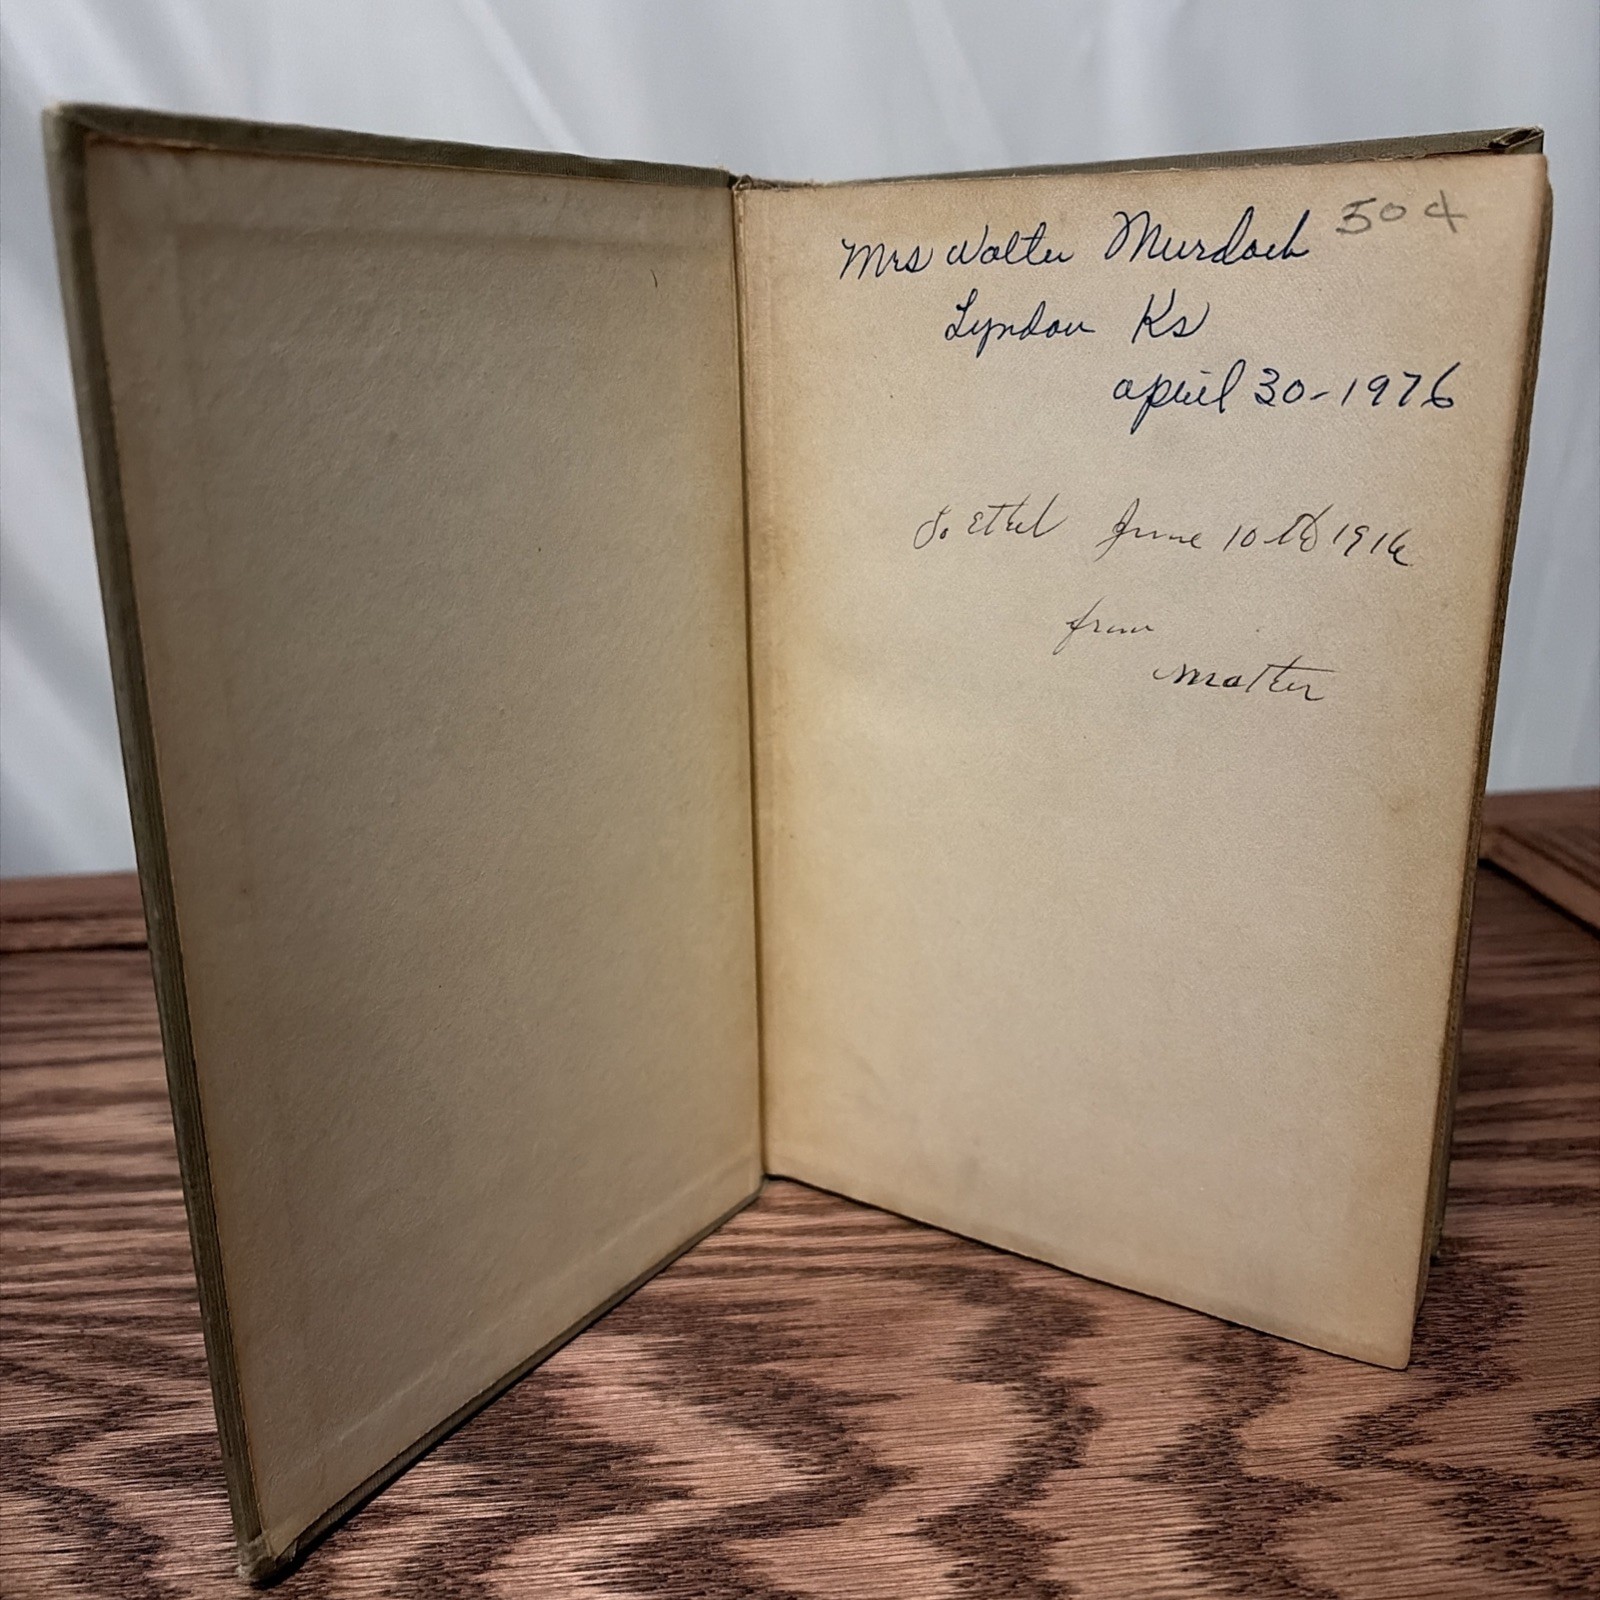 Mrs Walter Murdock 50¢
Lyndon Ks
April 30-1976
To Ethel June 10th 1916
from
Mother